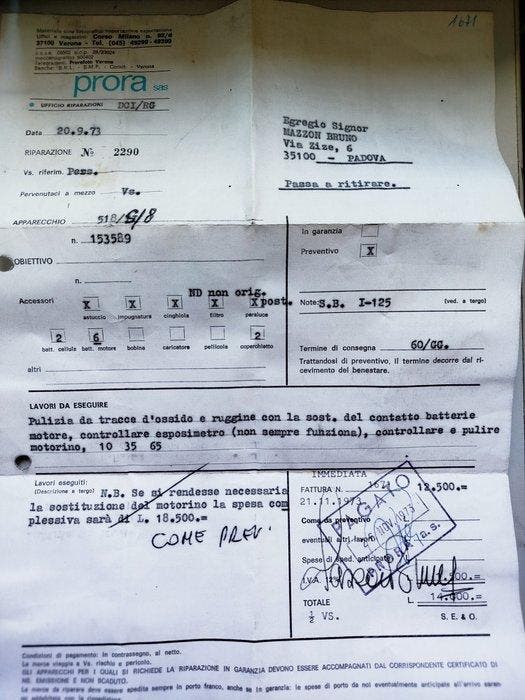 Materiale cine fotografico importazione esportazione
Uffici e magazzini Corso Milano n. 92/d
37100 Verona - Tel. (045) 49290 - 49390
Telegrammi: Prorafoto Verona
prora sas
1671
UFFICIO RIPARAZIONI DCI/RG
Data 20.9.73
RIPARAZIONE № 2290
Vs. riferim. Pers.
Pervenutaci a mezzo Vs.
Egregio Signor
MAZZON BRUNO
Via Zize, 6
35100 - PADOVA
Passa a ritirare.
APPARECCHIO 518/S/8
n. 153589
In garanzia
Preventivo X
OBIETTIVO
n.
ND non orig.
Accessori X X X X X post.
astuccio impugnatura cinghiola filtro paraluce
2 6 2
batt. cellula batt. motore bobina caricatore pellicola coperchietto
altri
Note: S.B. I-125 (ved. a tergo)
Termine di consegna 60/GG.
Trattandosi di preventivo, il termine decorre dal ri-
cevimento del benestare.
LAVORI DA ESEGUIRE
Pulizia da tracce d'ossido e ruggine con la sost. del contatto batterie
motore, controllare esposimetro (non sempre funziona), controllare e pulire
motorino, 10 35 65
Lavori eseguiti:
(Descrizione a tergo) N.B. Se si rendesse necessaria
la sostituzione del motorino la spesa com
plessiva sarà di L. 18.500.=
COME PREV.
IMMEDIATA
FATTURA N. 1621 12.500.=
21.11.1973
Come da preventivo
eventuali altri lavori
Spese di sped. anticipate
I.V.A. 12% 500.=
TOTALE L. 14.000.=
½ VS. S. E. & O.
PAGATO
NOV. 1973
PRORA s.a.s.
Condizioni di pagamento: in contrassegno, al netto.
La merce viaggia a Vs. rischio e pericolo.
GLI APPARECCHI PER I QUALI SI RICHIEDE LA RIPARAZIONE IN GARANZIA DEVONO ESSERE ACCOMPAGNATI DAL CORRISPONDENTE CERTIFICATO DI
NE EMISSIONE E NON SCADUTO.
La merce da riparare deve essere spedita sempre in porto franco, anche se in garanzia: le spese di porto da noi eventualmente anticipate all'arrivo saran-